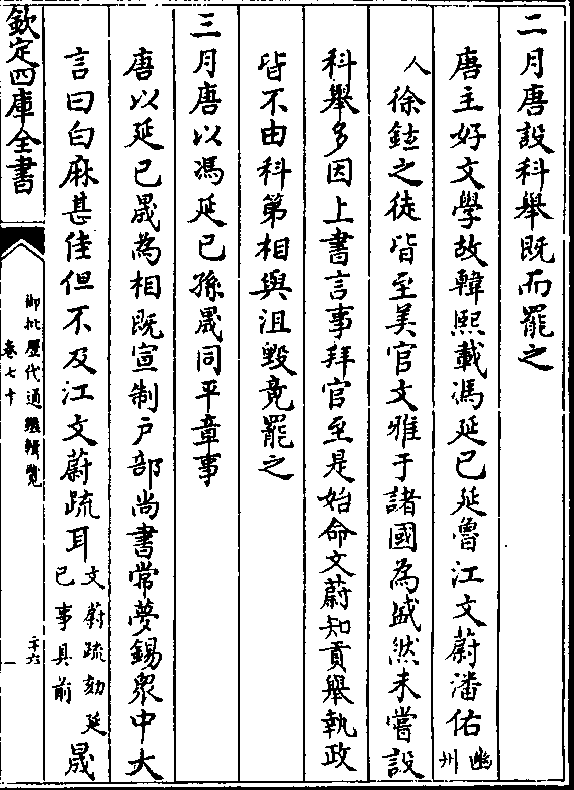 二月唐設科舉既而罷之
唐主好文學故韓熙載馮延已延魯江文蔚潘佑幽州
人徐鉉之徒皆至美官文雅于諸國為盛然未嘗設
科舉多因上書言事拜官至是始命文蔚知貢舉執政
皆不由科第相與沮毀竟罷之
三月唐以馮延已孫晟同平章事
唐以延已晟為相既宣制戶部尚書常夢錫衆中大
言曰白麻甚佳但不及江文蔚疏耳文蔚疏劾延已事具前晟
欽定四庫全書
御批歷代通鑑輯覽
卷七十
二十六